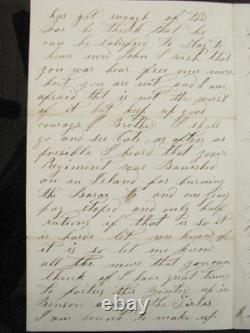 has got enough of this
war he think that he
can be satisfied to stay to
home now John I wish that
you was hear free one more
but you are not and I am
afraid that is not the worst
of it but keep up good
courage Brother I shall
go and see as often as
possible I heard that your
Regiment was Banished
on an Island for burning
the and one years
pay stoped and only half
rations if that is so it
is harde let me know if
it is so let me know
all the news that you can
think of I have great times
to parties this Winter up in
Benson the Girls
I am bound to make up